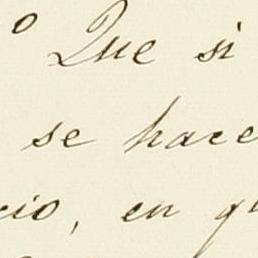 o Que si
se hace
cio, en q